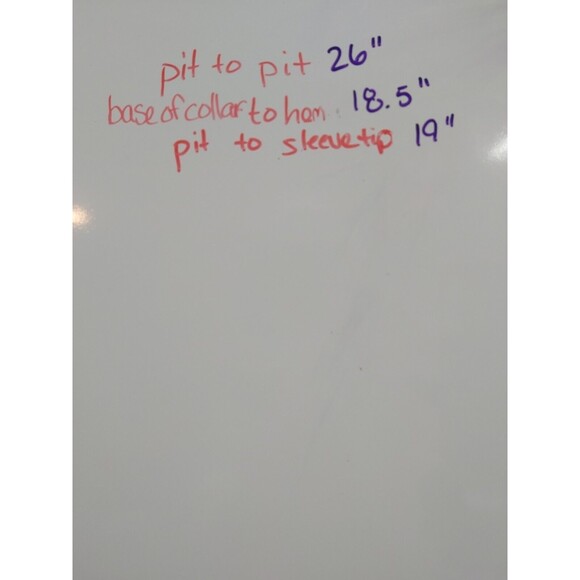 pit to pit 26"
base of collar to hem 18.5"
pit to sleeve tip 19"